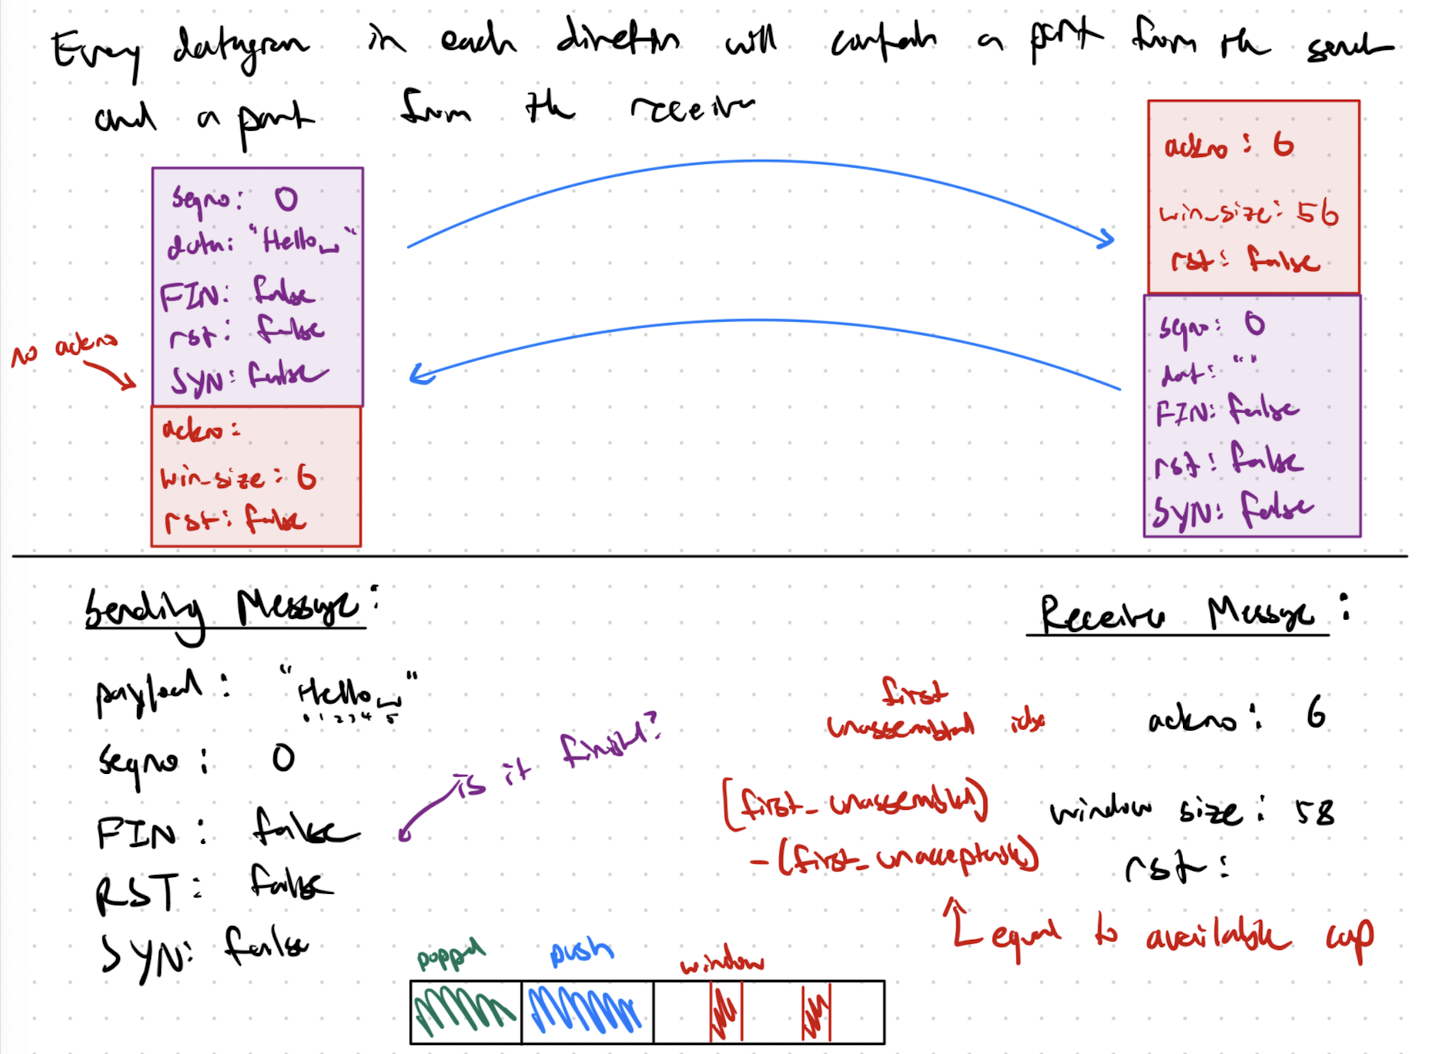 Every datagram in each direction will contain a part from the sender
and a part from the receiver
seqno: 0
data: "Hello␣"
FIN: false
rst: false
SYN: false
no ackno
ackno:
win_size: 6
rst: false
ackno: 6
win_size: 56
rst: false
seqno: 0
dat: ""
FIN: false
rst: false
SYN: false
Sending Message:
payload: "Hello␣"
0 1 2 3 4 5
seqno: 0
is it finish?
FIN: false
RST: false
SYN: false
Receiver Message:
first
unassembled idx
ackno: 6
(first_unassembled)
- (first_unacceptable)
window size: 58
rst:
equal to available cap
popped
push
window